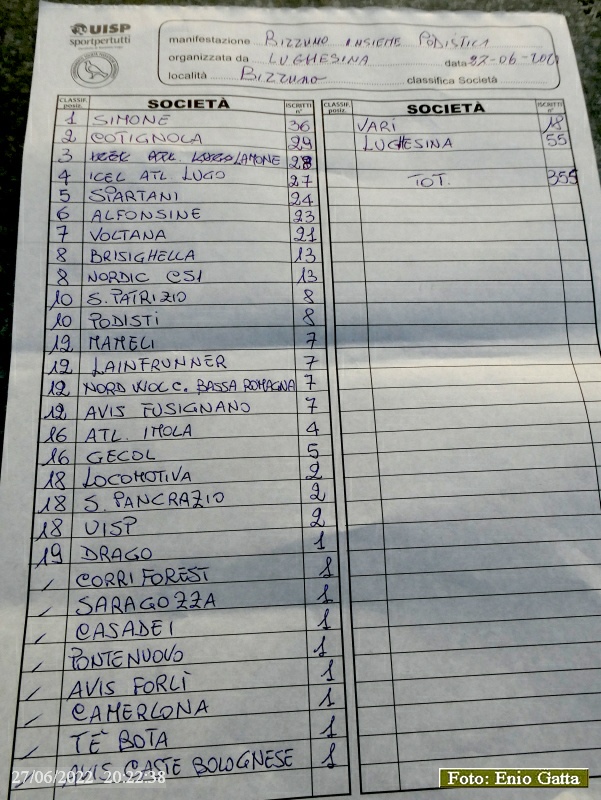 UISP
sportpertutti
manifestazione BIZZUNO INSIEME PODISTICA
organizzata da LUGHESINA data 27-06-202
località BIZZUNO classifica Società
CLASSIF. posiz. SOCIETÀ ISCRITTI n° CLASSIF. posiz. SOCIETÀ ISCRITTI n°
1 SIMONE 36 VARI 18
2 COTIGNOLA 29 LUGHESINA 55
3 ATL. LAMONE 28
4 ICEL ATL LUGO 27 TOT. 355
5 SPARTANI 24
6 ALFONSINE 23
7 VOLTANA 21
8 BRISIGHELLA 13
8 NORDIC CSI 13
10 S. PATRIZIO 8
10 PODISTI 8
12 MAMELI 7
12 LAINFRUNNER 7
12 NORD WOL C. BASSA ROMAGNA 7
12 AVIS FUSIGNANO 7
16 ATL. IMOLA 4
16 GECOL 5
18 LOCOMOTIVA 2
18 S. PANCRAZIO 2
18 UISP 2
19 DRAGO 1
/ CORRI FOREST 1
/ SARAGOZZA 1
/ CASADEI 1
/ PONTENUOVO 1
/ AVIS FORLÌ 1
/ CAMERLONA 1
/ TE BOTA 1
/ AVIS CASTE BOLOGNESE 1
27/06/2022 20:22:38
Foto: Enio Gatta